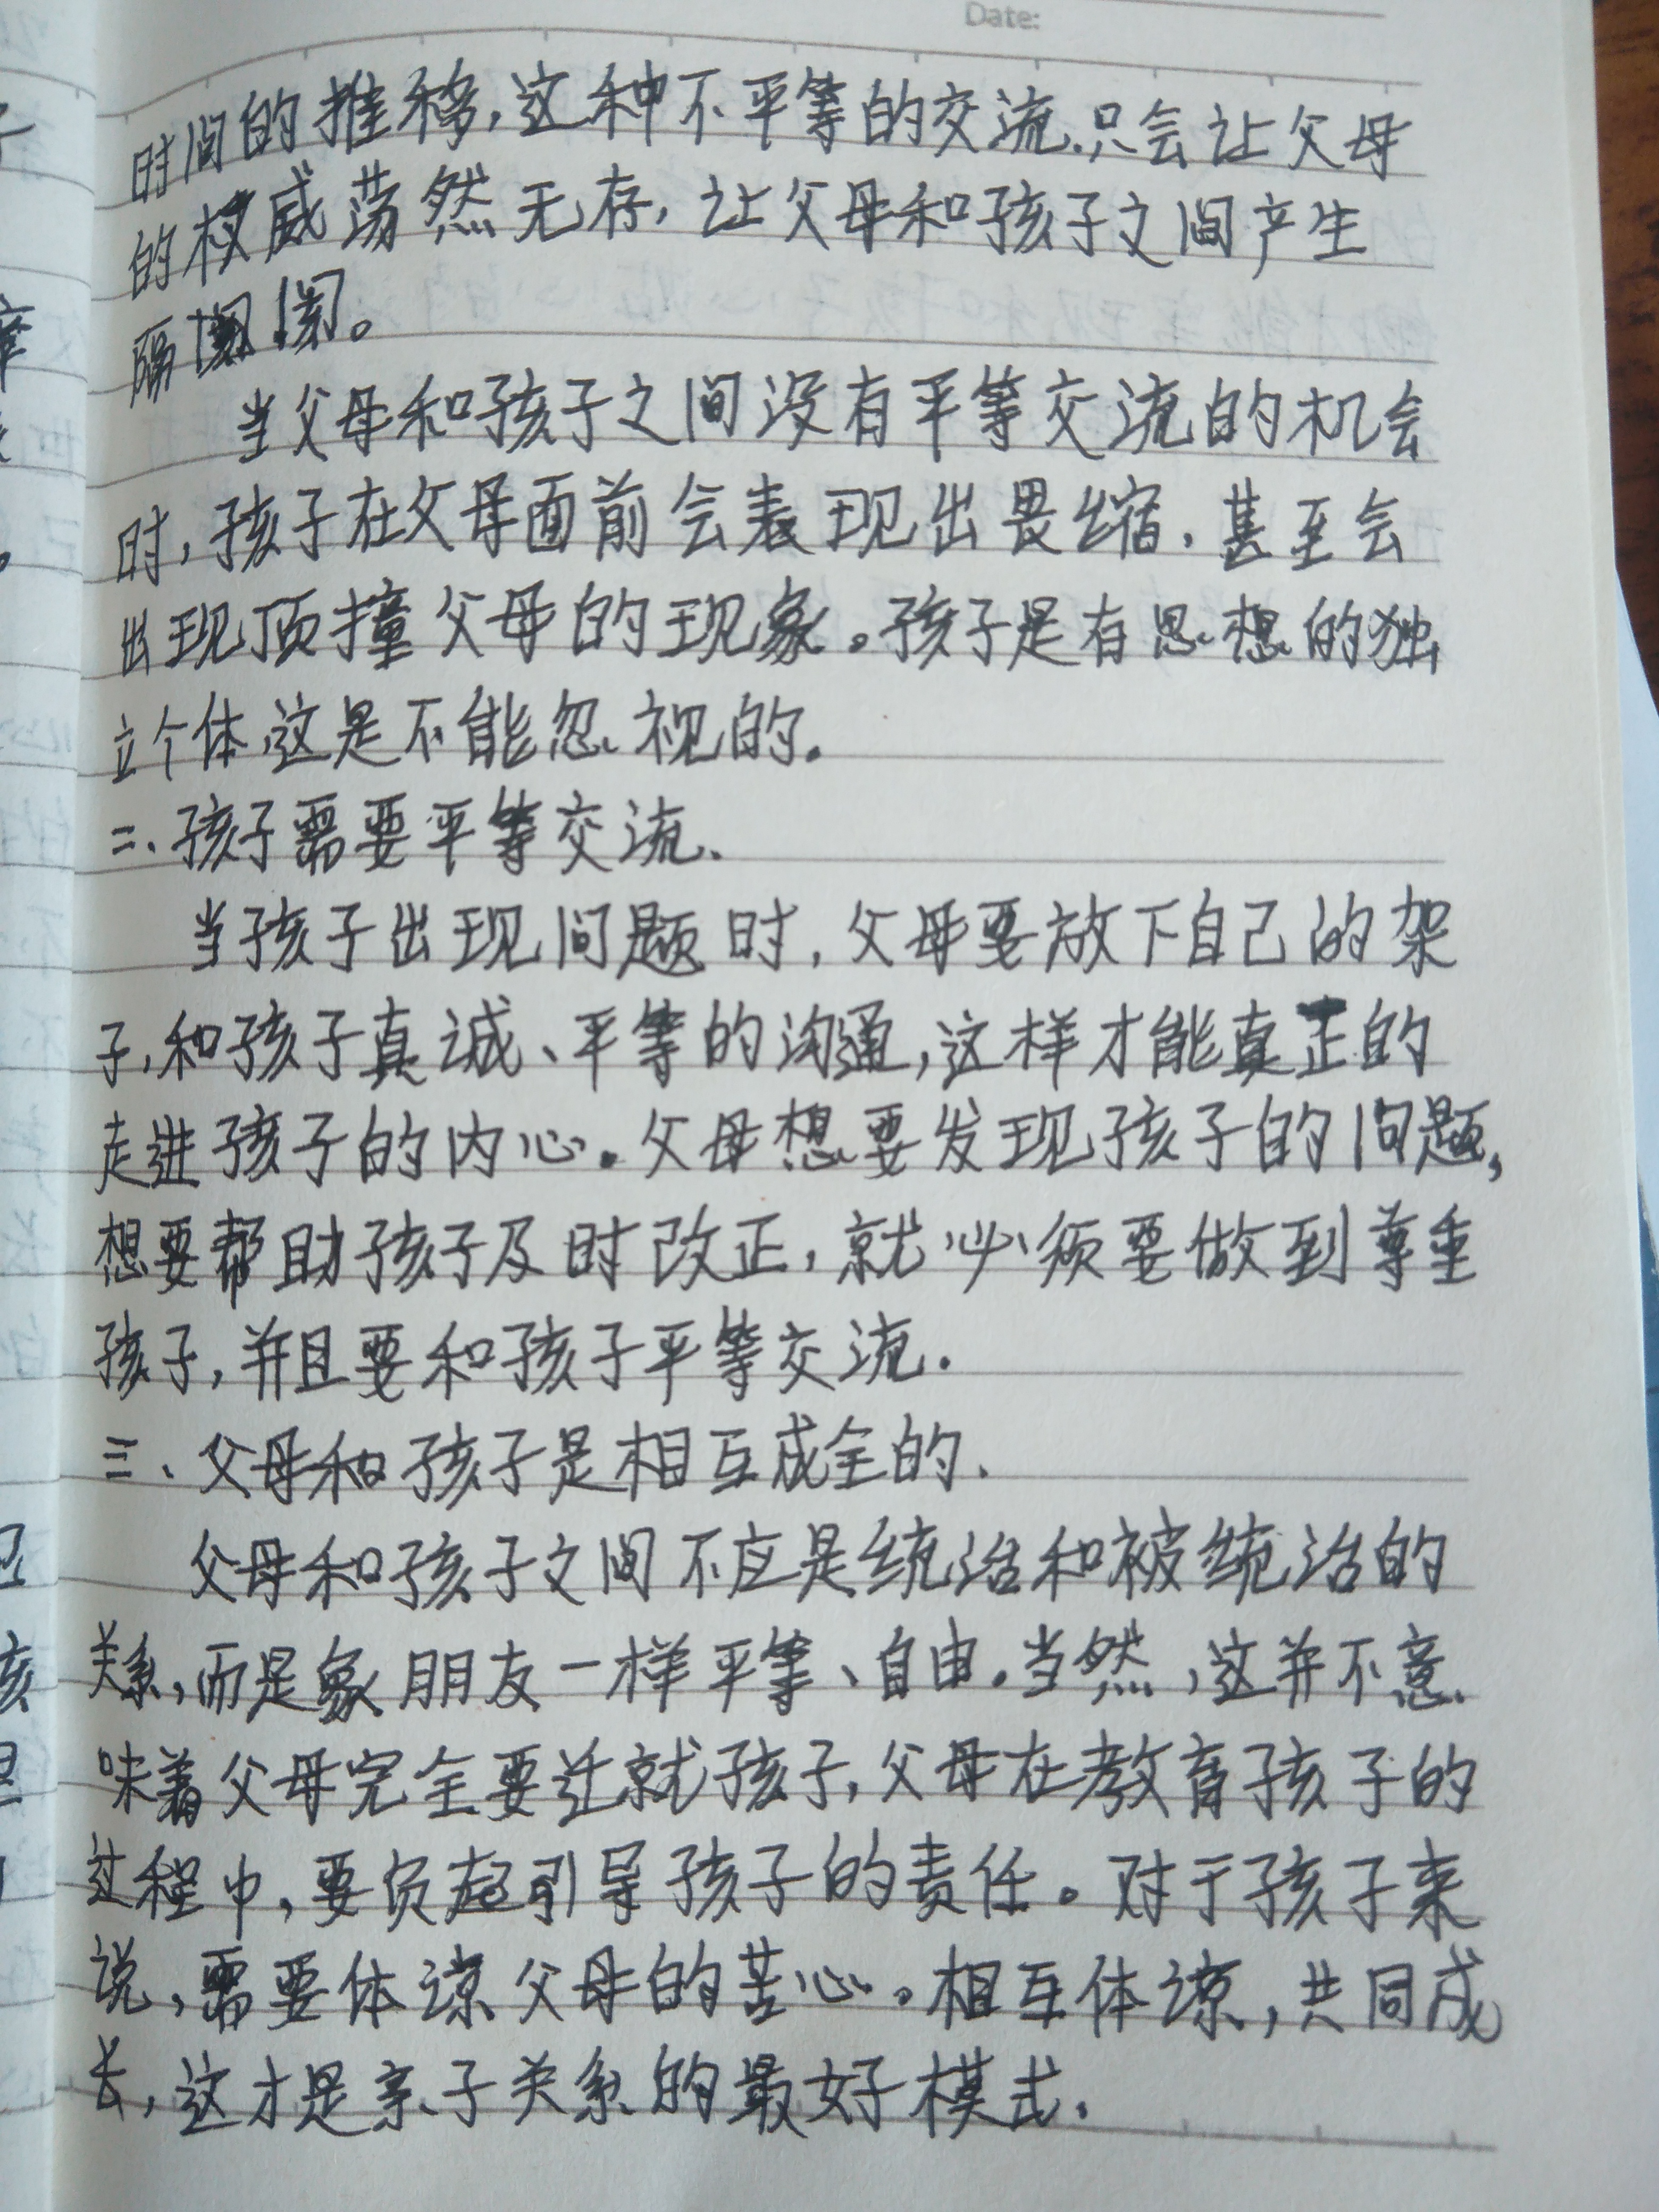 Date:
时间的推移,这种不平等的交流.只会让父母
的权威荡然无存,让父母和孩子之间产生
隔阂。
当父母和孩子之间没有平等交流的机会
时,孩子在父母面前会表现出畏缩.甚至会
出现顶撞父母的现象。孩子是有思想的独
立个体,这是不能忽视的.
二、孩子需要平等交流.
当孩子出现问题时,父母要放下自己的架
子,和孩子真诚、平等的沟通,这样才能真正的
走进孩子的内心.父母想要发现孩子的问题,
想要帮助孩子及时改正,就必须要做到尊重
孩子,并且要和孩子平等交流.
三、父母和孩子是相互成全的.
父母和孩子之间不应是统治和被统治的
关系,而是象朋友一样平等、自由.当然,这并不意
味着父母完全要迁就孩子,父母在教育孩子的
过程中,要负起引导孩子的责任。对于孩子来
说,需要体谅父母的苦心.相互体谅,共同成
长,这才是亲子关系的最好模式.